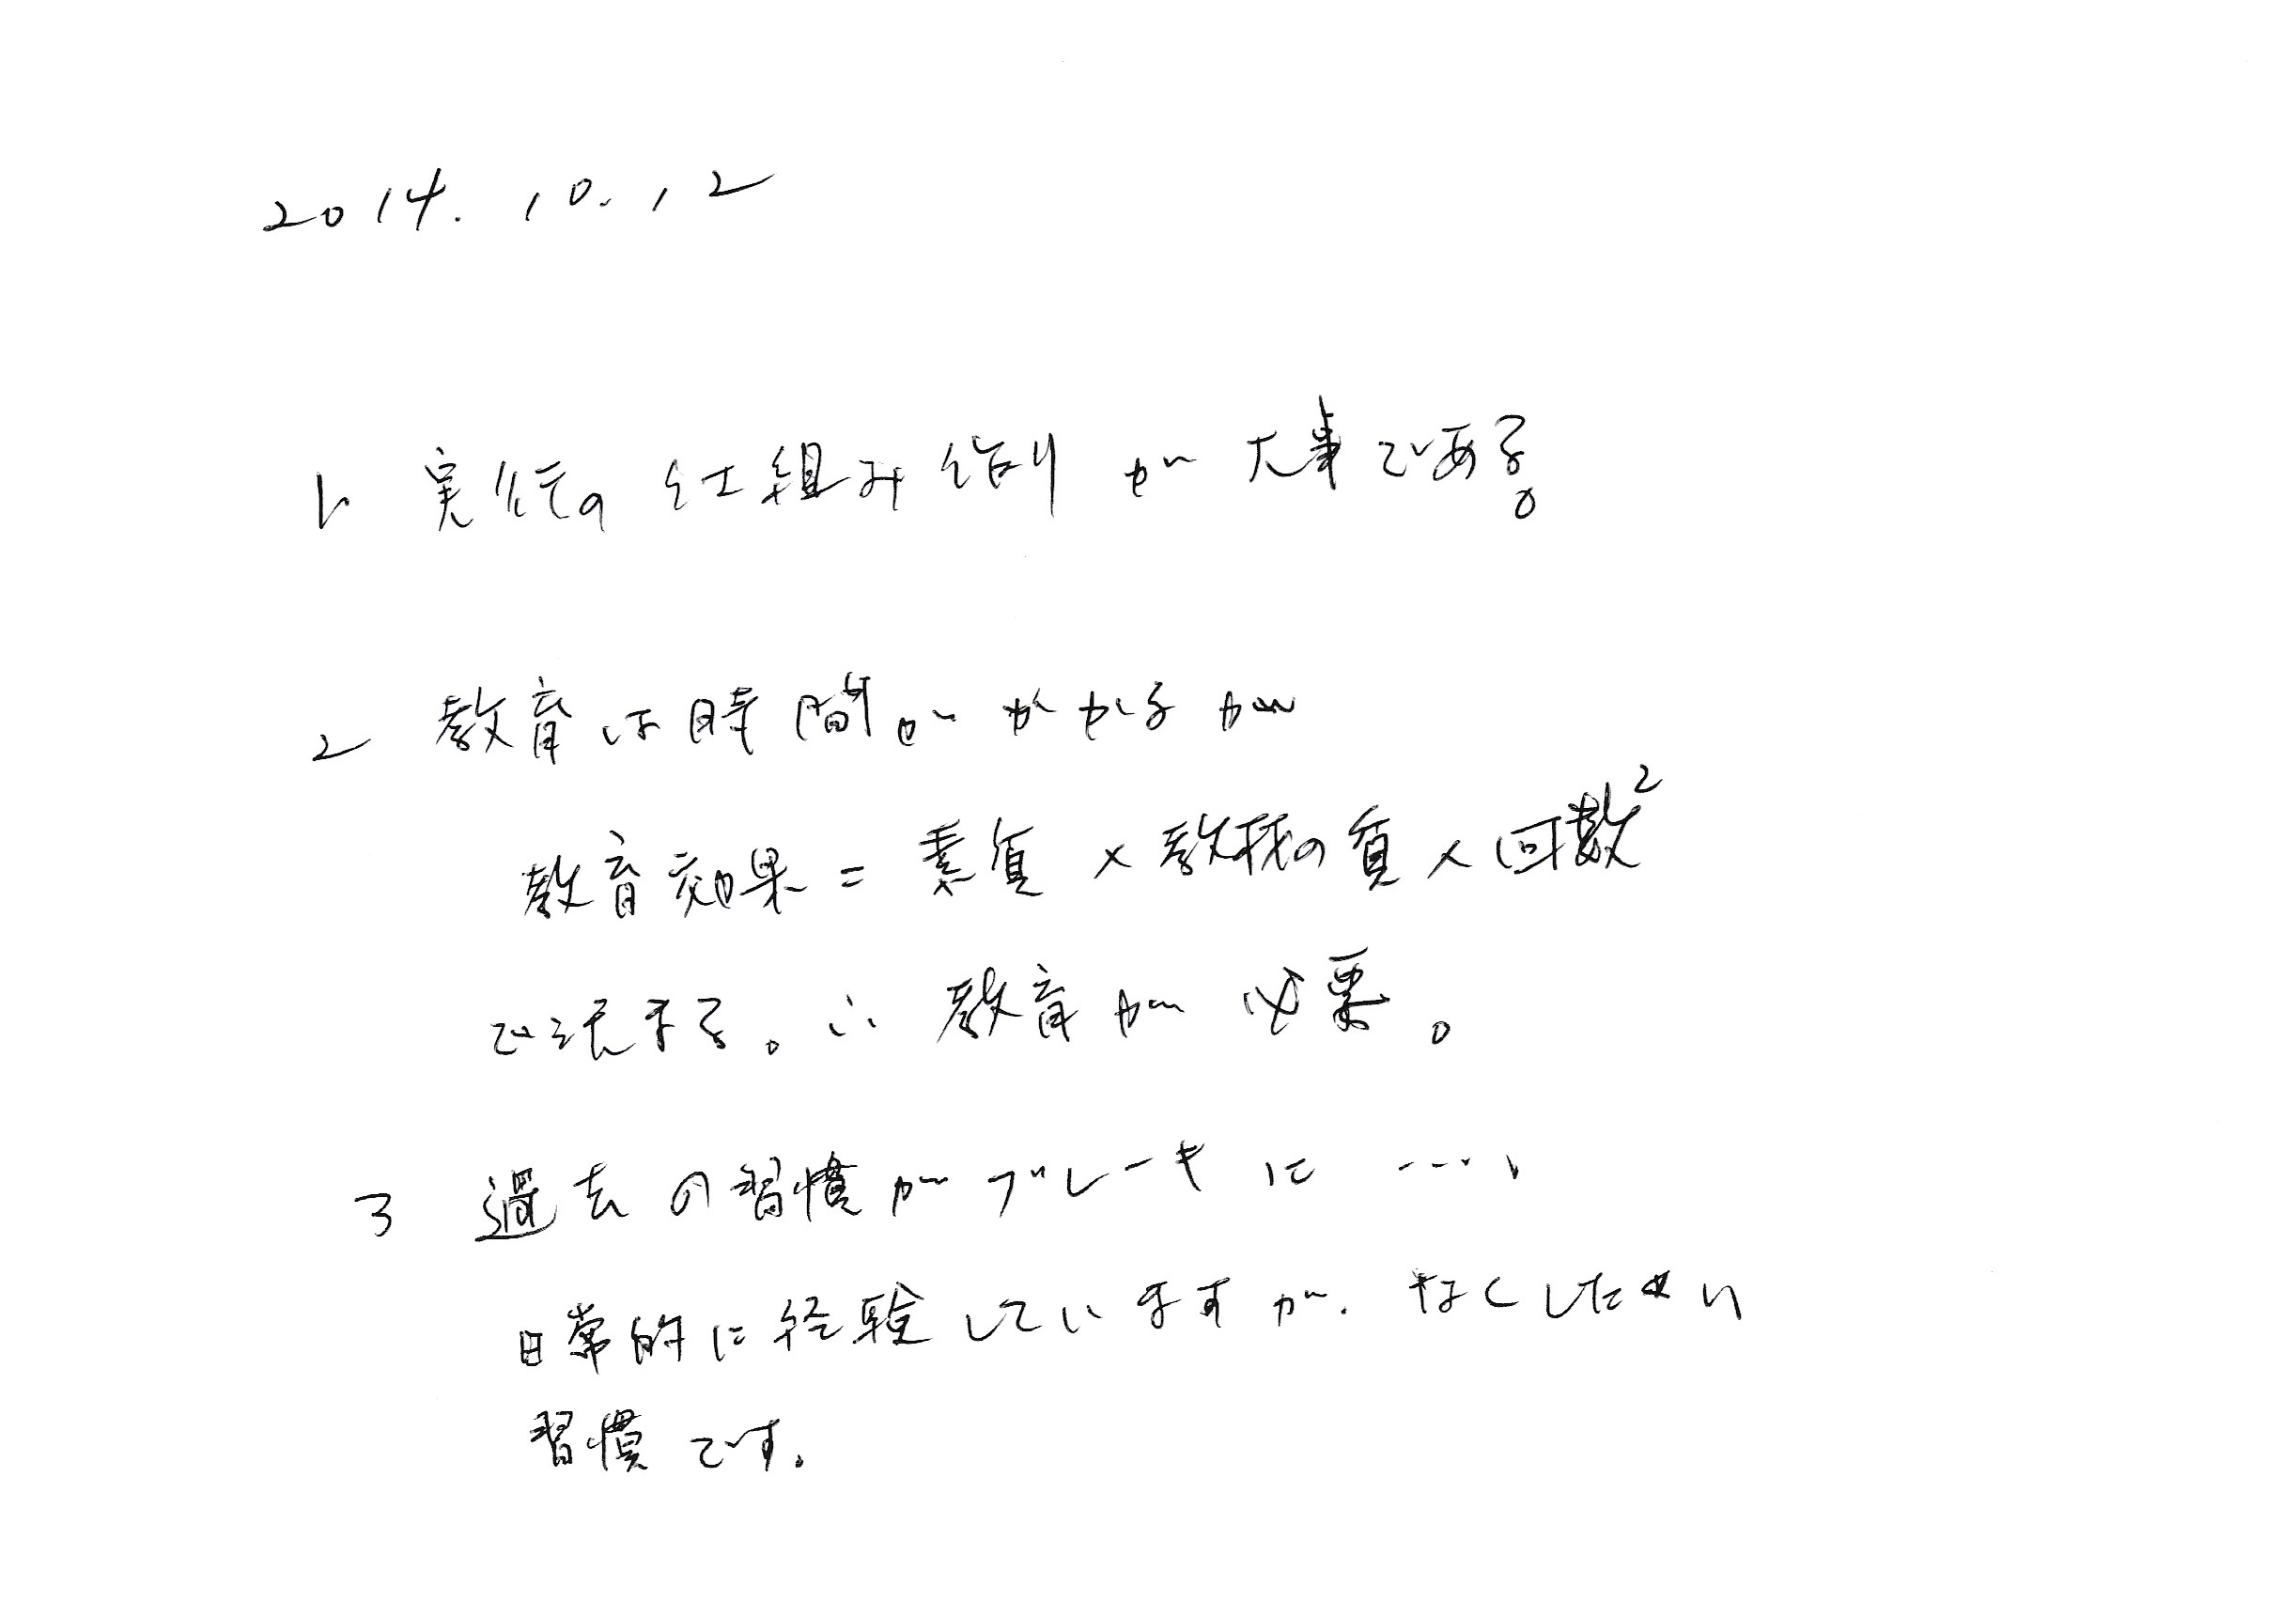 2014.10.12
1. 実行の仕組み作りが大事である。
2 教育は時間がかかるが
教育効果=素質×教材の質×回数²
で決まる。∴教育が必要。
3 過去の習慣がブレーキに・・・・、
日常的に経験していますが、なくしたい
習慣です。